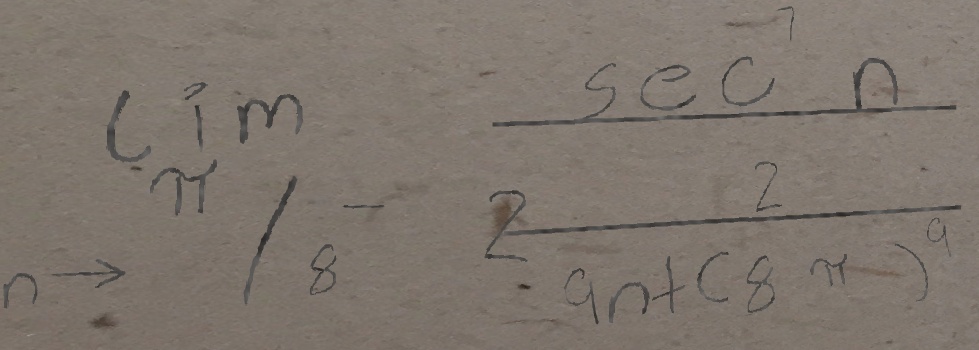 lim n → π/8⁻ sec⁷ n / (2 2/(9n+(8π)⁹))